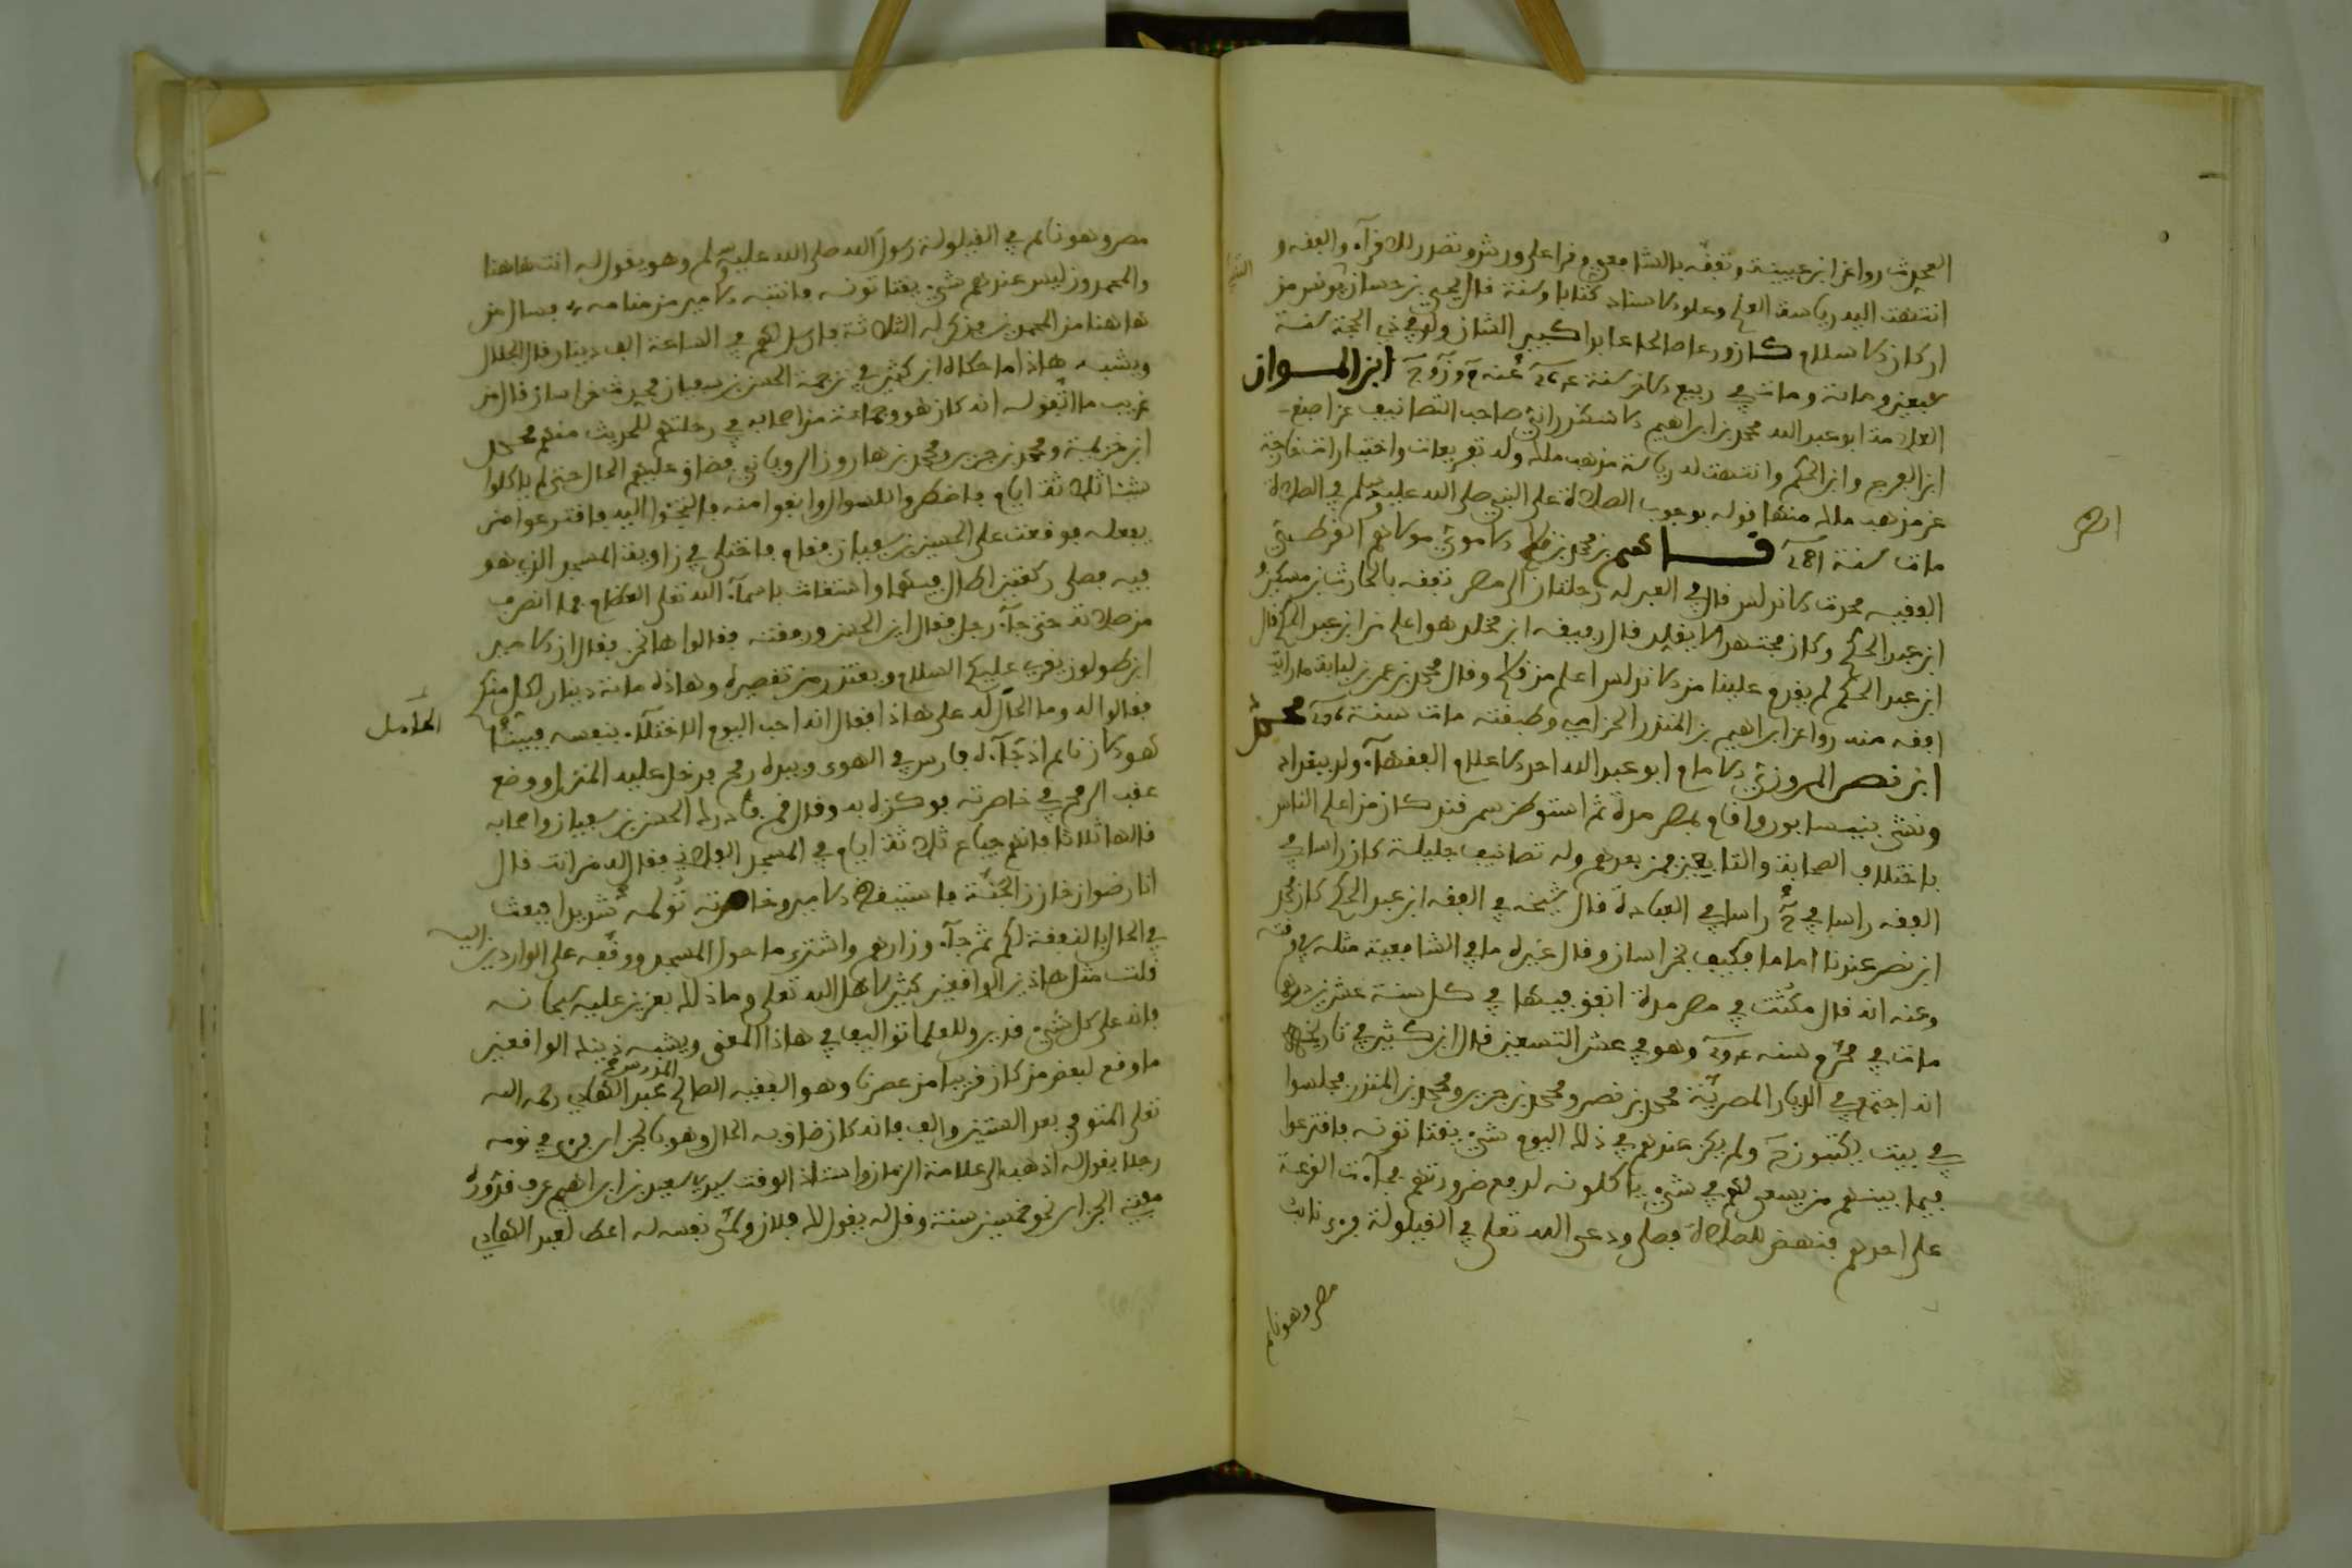 المحدث روا عن ابن عيينة وتفقه بالشافعي وقرا على ورش وتصدر للاقرآء والفقه و
انتهت اليه رياسة العلم وعلو الاسناد كتابا وسنة قال يحيى بن حسان يونس من
اركان الاسلام كان ورعا صالحا عابدا كبير الشان ولد في ذي الحجة سنة
سبعين ومائة ومات في ربيع الاخر سنة 264 عنه م و ن و ق ابن المواز
العلامة ابو عبد الله محمد بن ابراهيم الاسكندراني صاحب التصانيف عن اصبغ
ابن الفرج وابن الحكم وانتهت له رياسة مذهب ملك وله تفريعات واختيارات خارجة
عن مذهب ملك منها قوله بوجوب الصلاة على النبي صلى الله عليه وسلم في الصلاة
مات سنة 281 قاسم بن محمد بن قاسم الاموي مولاهم القرطبي
الفقيه محدث الاندلس قال في العبر له رحلتان الى مصر تفقه بالحارث بن مسكين و
ابن عبد الحكم وكان مجتهدا لا يقلد قال رفيقه ابن مخلد هو اعلم من ابن عبد الحكم قال
ابن عبد الحكم لم يقدم علينا من الاندلس اعلم من قاسم وقال محمد بن عمر بن لبابة ما رايت
افقه منه روا عن ابراهيم بن المنذر الحزامي وطبقته مات سنة 276 محمد
ابن نصر المروزي الامام ابو عبد الله احد الاعلام الفقهآء ولد ببغداد
ونشى بنيسابور واقام بمصر مدة ثم استوطن سمرقند كان من اعلم الناس
باختلاف الصحابة والتابعين فمن بعدهم وله تصانيف جليلة كان راسا في
الفقه راسا في ح راسا في العبادة قال شيخه في الفقه ابن عبد الحكم كان محمد
ابن نصر عندنا اماما فكيف بخراسان وقال غيره ما في الشافعية مثله في وقته
وعنه انه قال مكثت في مصر مدة انفق فيها في كل سنة عشرين درهما
مات في محرم سنه 294 وهو في عشر التسعين قال ابن كثير في تاريخه
انه اجتمع في الديار المصرية محمد بن نصر ومحمد بن جرير ومحمد بن المنذر فجلسوا
في بيت يكتبون ح ولم يكن عندهم في ذلك اليوم شيء يقتاتونه فاقترعوا
فيما بينهم من يسعى لهم في شيء ياكلونه لدفع ضرورتهم فجآءت القرعة
على احدهم فنهض للصلاة فصلى ودعى الله تعلى في القيلولة فرءى نائب
مصر وهو نايم
مصر وهو نايم في القيلولة رسول الله صلى الله عليه وسلم وهو يقول له انت هاهنا
والمحمدون ليس عندهم شيء يقتاتونه فانتبه الامير من منامه فسال من
هاهنا من المحمدين فذكر له الثلاثة فارسل لهم في الساعة الف دينار قال الجلال
ويشبه هاذا ما حكاه ابن كثير في ترجمة الحسن بن سفيان محدث خراسان قال من
غريب ما اتفق له انه كان هو وجماعة من اصحابه في رحلتهم للحديث منهم محمد
ابن خزيمة ومحمد بن جرير ومحمد بن هارون الروياني فضاق عليهم الحال حتى لم ياكلوا
شيئا ثلاثة ايام فاضطروا للسوال وانفوا منه فالتجوا اليه فاقترعوا من
يفعله فوقعت على الحسن بن سفيان فقام فاختلى في زاوية المسجد الذي هو
فيه فصلى ركعتين اطال فيهما واستغاث باسمآء الله تعلى العظام فما انصرف
من صلاته حتى جآء رجل فقال اين الحسن ورفقته فقالوا ها نحن فقال ان الامير
ابن طولون يقرئ عليكم السلام ويعتذر من تقصيره وهاذه مائة دينار لكل منكم
فقالوا له وما الحآمل له على هاذا فقال انه احب اليوم الاختلآء بنفسه فبينما
الحآمل
هو الان نايم اذ جآءه فارس في الهوى وبيده رمح فدخل عليه المنزل ووضع
عقب الرمح في خاصرته فوكزه به وقال قم فادرك الحسن بن سفيان واصحابه
قالها ثلاثا فانهم جياع ثلاثة ايام في المسجد الفلاني فقال له من انت قال
انا رضوان خازن الجنة فاستيقظ الامير وخاصرته تولمه شديدا فبعث
في الحال بالنفقة لكم ثم جآء وزارهم واشترى ما حول المسجد ووقفه على الواردين اليه
قلت مثل هاذين الواقعين كثير لاهل الله تعلى وما ذلك بعزيز عليه سبحانه
فانه على كل شيء قدير وللعلما تواليف في هاذا المعنى ويشبه ذينك الواقعين
ما وقع لبعض من كان قريبا من عصرنا وهو الفقيه الصالح عبد الهادي رحمه الله
تعلى المتوفي بعد الستين والف فانه كان ضاق به الحال وهو بالجزاير فرءى في نومه
رجلا يقول له اذهب الى علامة الزمان واستاذ الوقت سيدي سعيد بن ابراهيم عرف قدورة
مفتي الجزاير نحو خمسين سنة وقل له يقول لك فلان وسمى نفسه له اعط لعبد الهادي